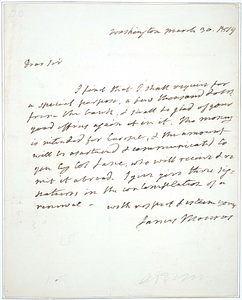 Washington March 30. 1819
Dear Sir
I find that I shall require for
a special purpose, a few thousand dolrs
from the bank, & shall be glad of your
good offices again in it. The money
is intended for Europe, & the amount
will be ascertained & communicated to
you by Col Lane, who will receive & re
mit it abroad. I give you these
in the contemplation of a
renewal — with respect & esteem yours
James Monroe